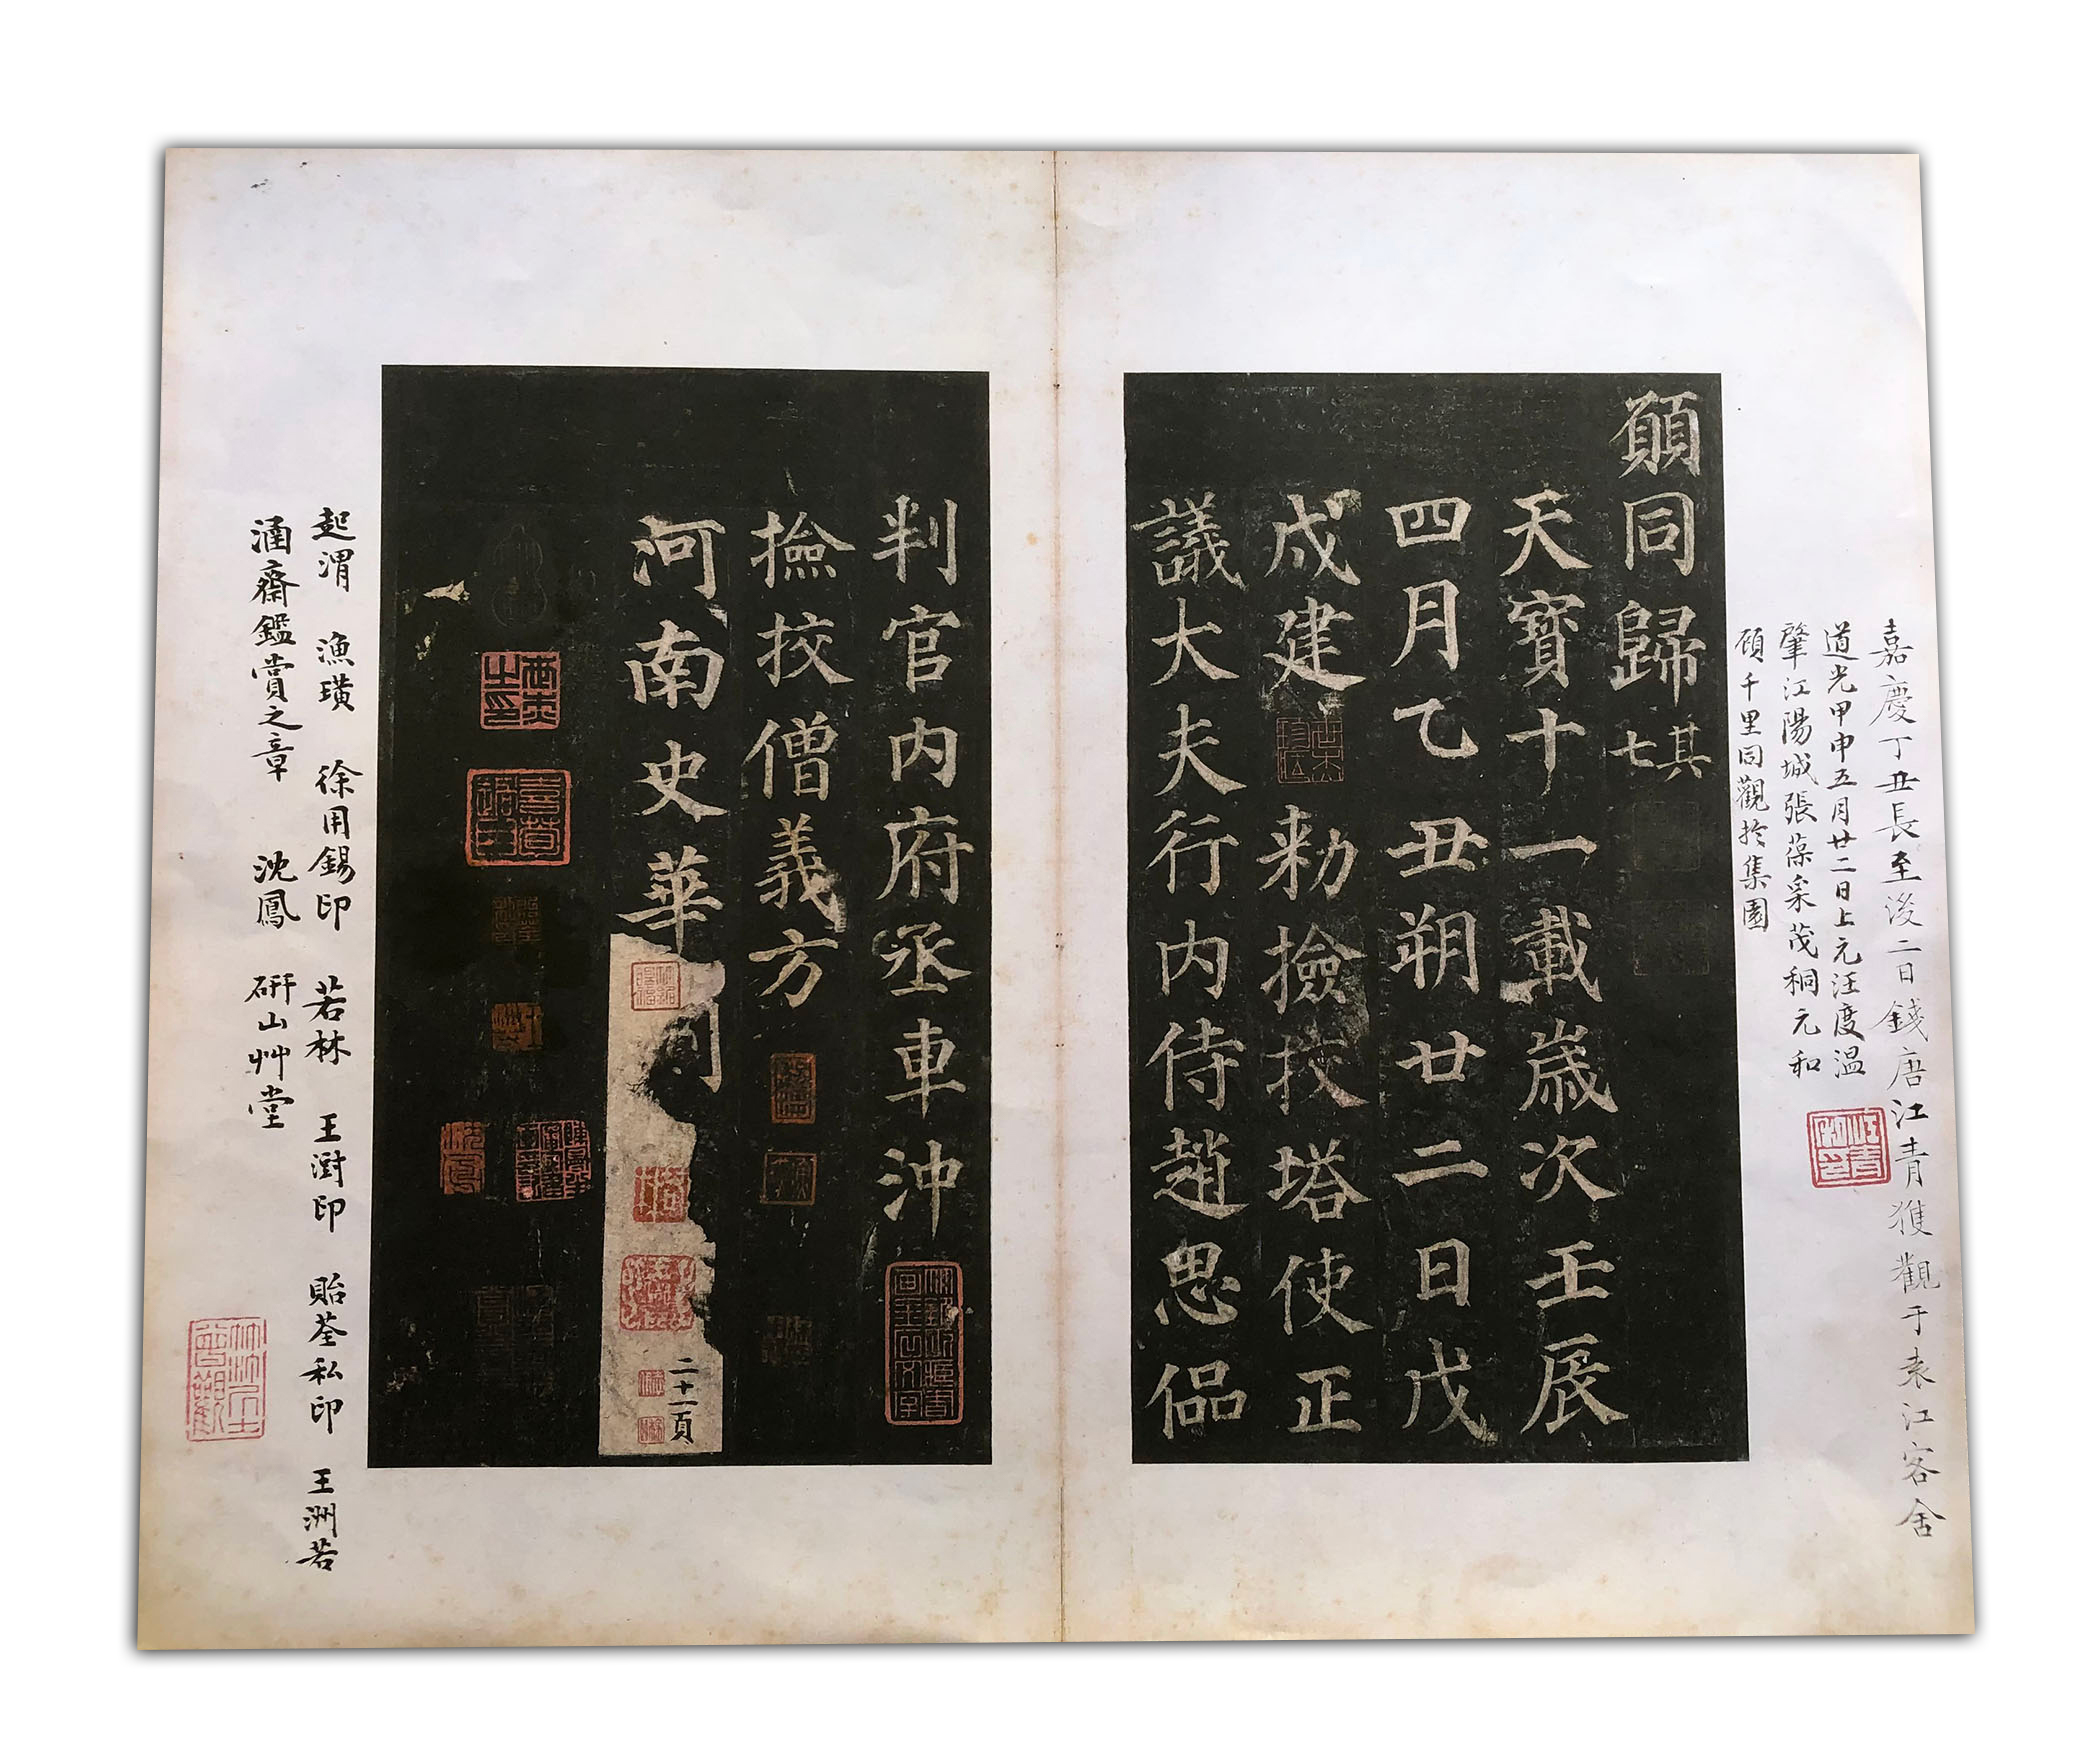 嘉慶丁丑長至後二日錢唐江青獲觀于袁江客舍
道光甲申五月廿二日上元汪度溫
肇江陽城張葆采茂桐元和
顧千里同觀於集園
願同歸其七
天寶十一載歲次壬辰
四月乙丑朔廿二日戊
戍建
勑撿挍塔使正
議大夫行内侍趙思侣
判官内府丞車沖
撿挍僧義方
河南史華
二十一頁
沈鳳
起渭 漁璜 徐用錫印 若林 王澍印 貽荃私印 王洲若
涵齋鑑賞之章 沈鳳 硏山艸堂